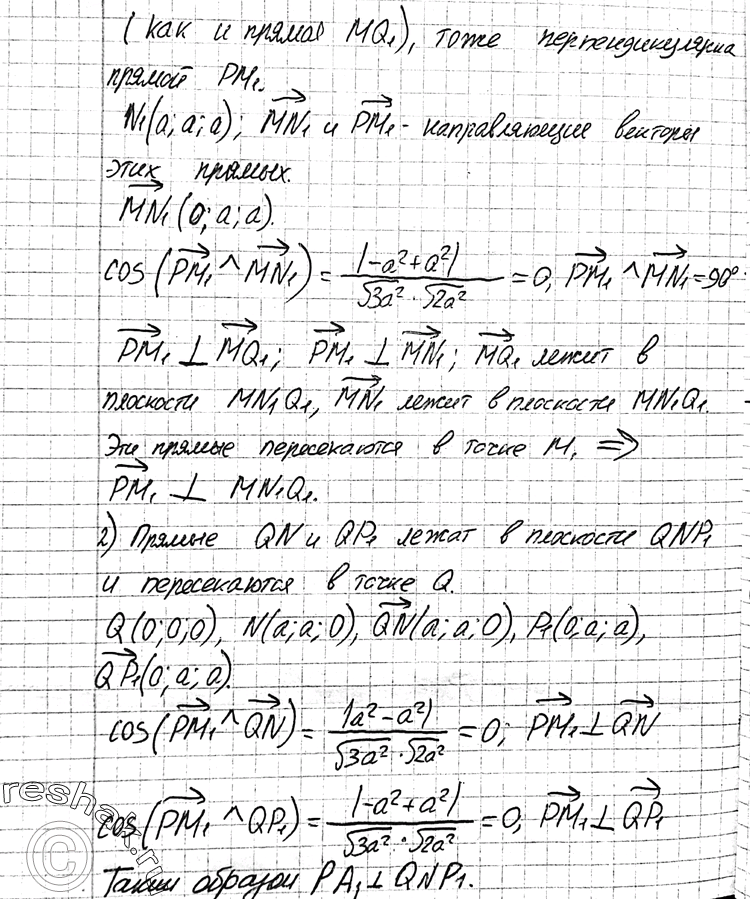 (как и прямая MQ₁), тоже перпендикулярна
прямой PM₁.
N₁(a; a; a); MN₁ и PM₁ - направляющие векторы
этих прямых.
MN₁(0; a; a).
cos(PM₁ ^ MN₁) = |-a² + a²| / √3a² · √2a² = 0, PM₁ ^ MN₁ = 90°
PM₁ ⊥ MQ₁; PM₁ ⊥ MN₁; MQ₁ лежит в
плоскости MN₁Q₁, MN₁ лежит в плоскости MN₁Q₁.
Эти прямые пересекаются в точке M, ⇒
PM₁ ⊥ MN₁Q₁.
2) Прямые QN и QP₁ лежат в плоскости QNP₁
и пересекаются в точке Q.
Q(0; 0; 0), N(a; a; 0), QN(a; a; 0), P₁(0; a; a),
QP₁(0; a; a).
cos(PM₁ ^ QN) = |a² - a²| / √3a² · √2a² = 0; PM₁ ⊥ QN
cos(PM₁ ^ QP₁) = |-a² + a²| / √3a² · √2a² = 0, PM₁ ⊥ QP₁
Таким образом PA₁ ⊥ QNP₁.
reshak.ru